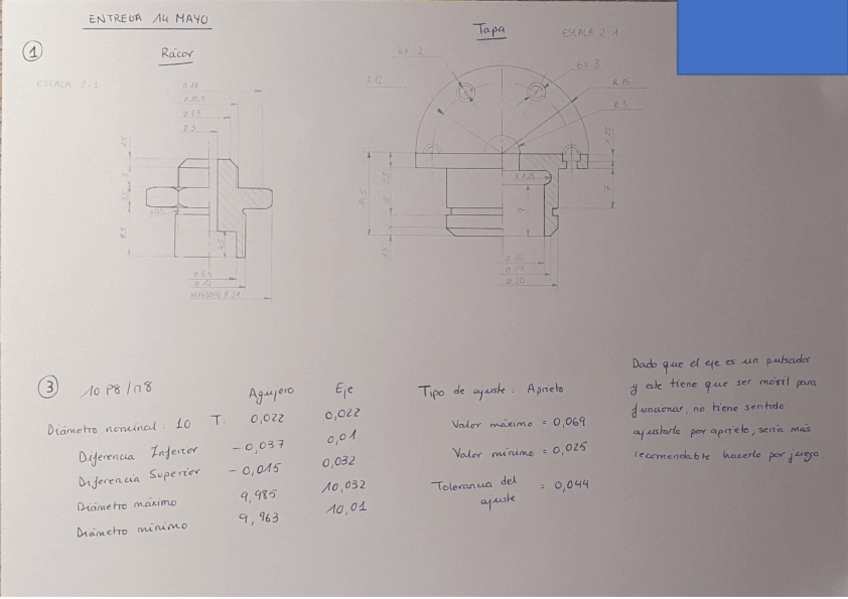 ENTREGA 14 MAYO
1
Rácor
Tapa
ESCALA 2-1
ESCALA 2-1
6x 2
6x 3
R 12
R 15
R 3
Ø 7,5
Ø 3
Ø 6,5
Ø 12
Ø 15
Ø 17
Ø 20
3
10 P8/n8
Agujero Eje
Diámetro nominal: 10 T: 0,022 0,022
Diferencia Inferior -0,037 0,01
Diferencia Superior -0,015 0,032
Diámetro máximo 9,985 10,032
Diámetro mínimo 9,963 10,01
Tipo de ajuste: Aprieto
Valor máximo = 0,069
Valor mínimo = 0,025
Tolerancia del ajuste = 0,044
Dado que el eje es un pulsador
y este tiene que ser móvil para
funcionar, no tiene sentido
ajustarlo por aprieto, sería más
recomendable hacerlo por juego.